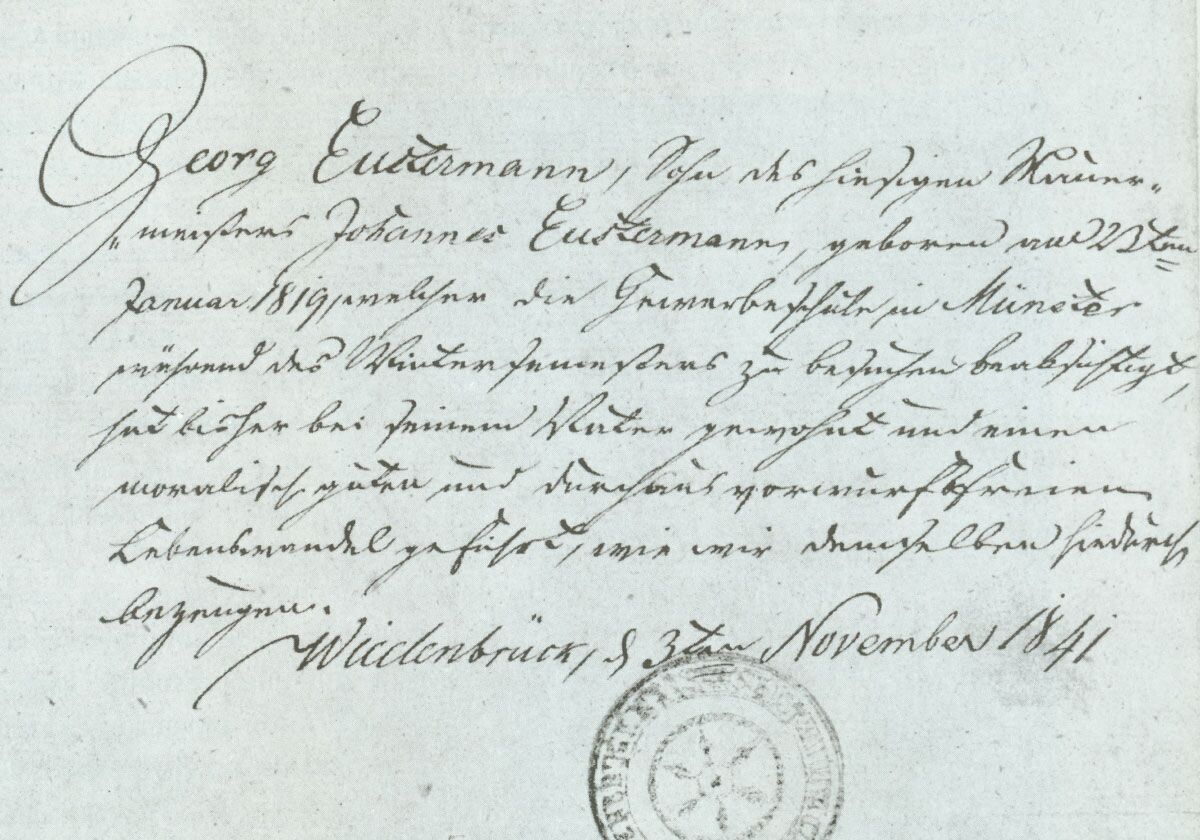 Georg Eustermann, Sohn des hiesigen Mauer-
-meisters Johannes Eustermann, geboren am ten
Januar 1819, welcher die Gewerbeschule in Münster
während des Wintersemesters zu besuchen beabsichtigt,
hat bisher bei seinem Vater gewohnt und einen
moralisch guten und durchaus vorwurfsfreien
Lebenswandel geführt, wie wir demselben hiedurch
bezeugen.
Wiedenbrück, d 3ten November 1841